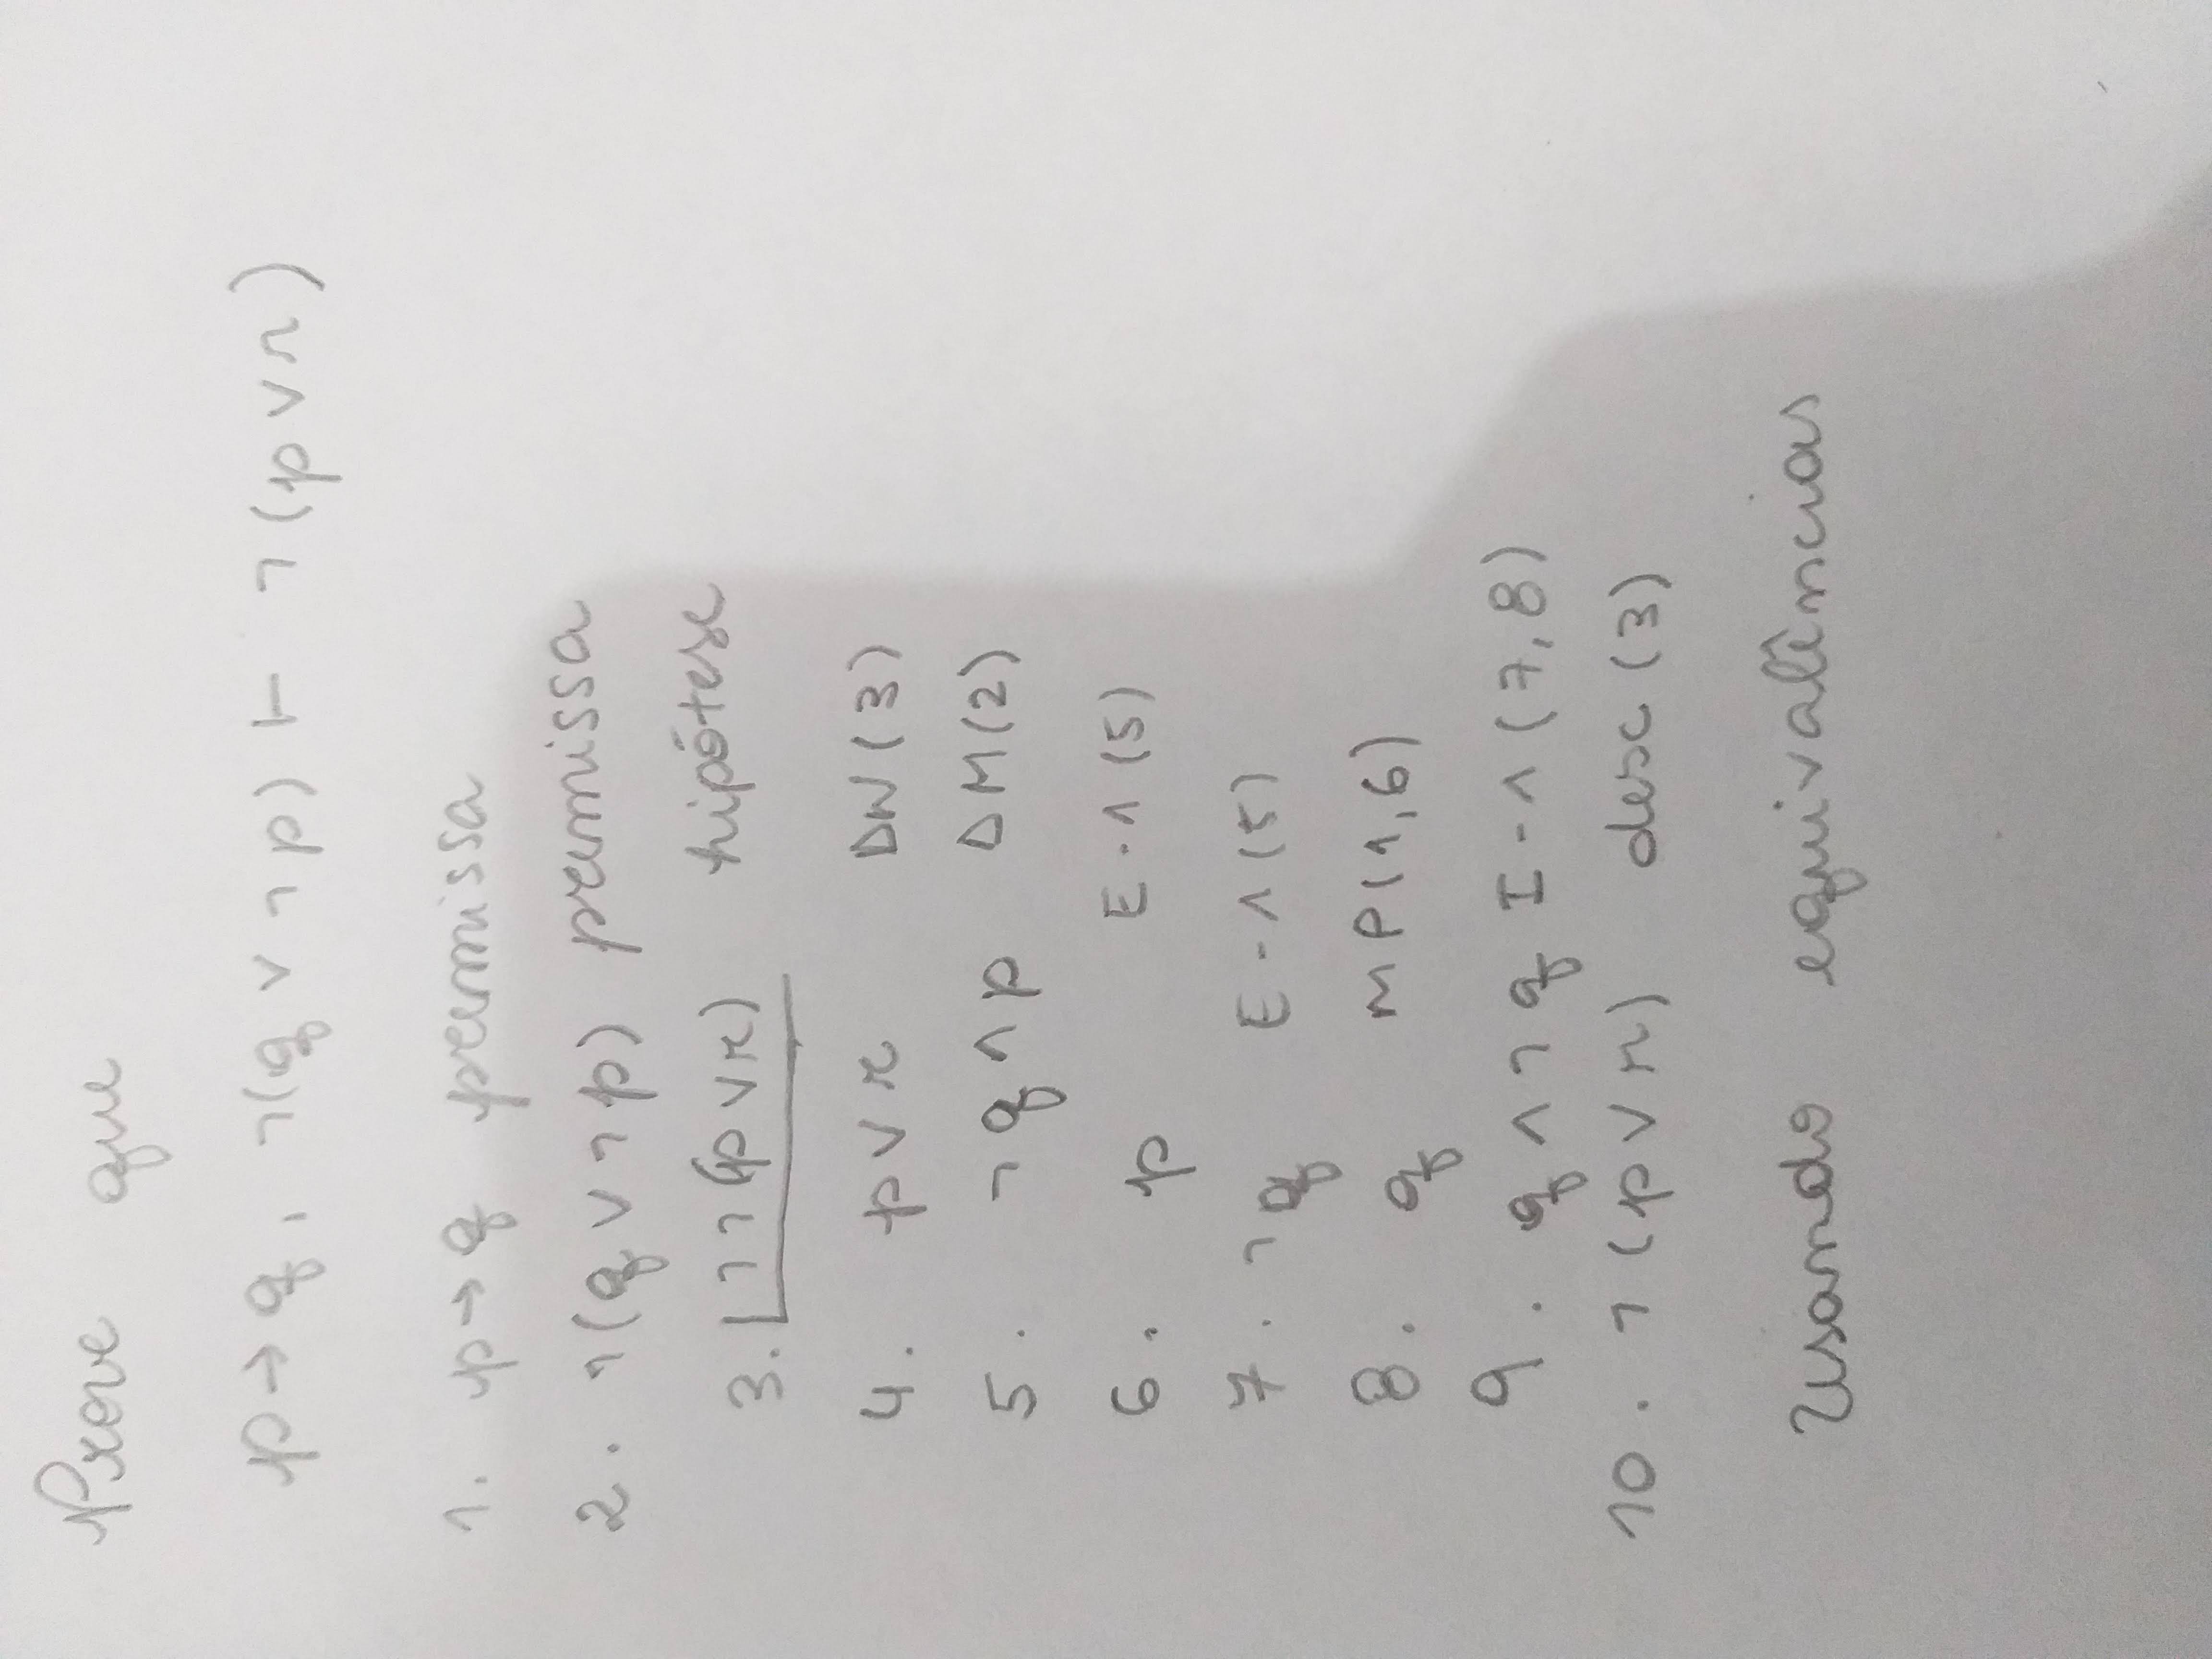 Prove que
p → q, ¬(q ∨ ¬p) ⊢ ¬(p ∨ r)
1. p → q premissa
2. ¬(q ∨ ¬p) premissa
3. ¬¬(p ∨ r) hipótese
4. p ∨ r DN(3)
5. ¬q ∧ p DM(2)
6. p E-∧(5)
7. ¬q E-∧(5)
8. q MP(1,6)
9. q ∧ ¬q I-∧(7,8)
10. ¬(p ∨ r) desc(3)
Usando equivalências